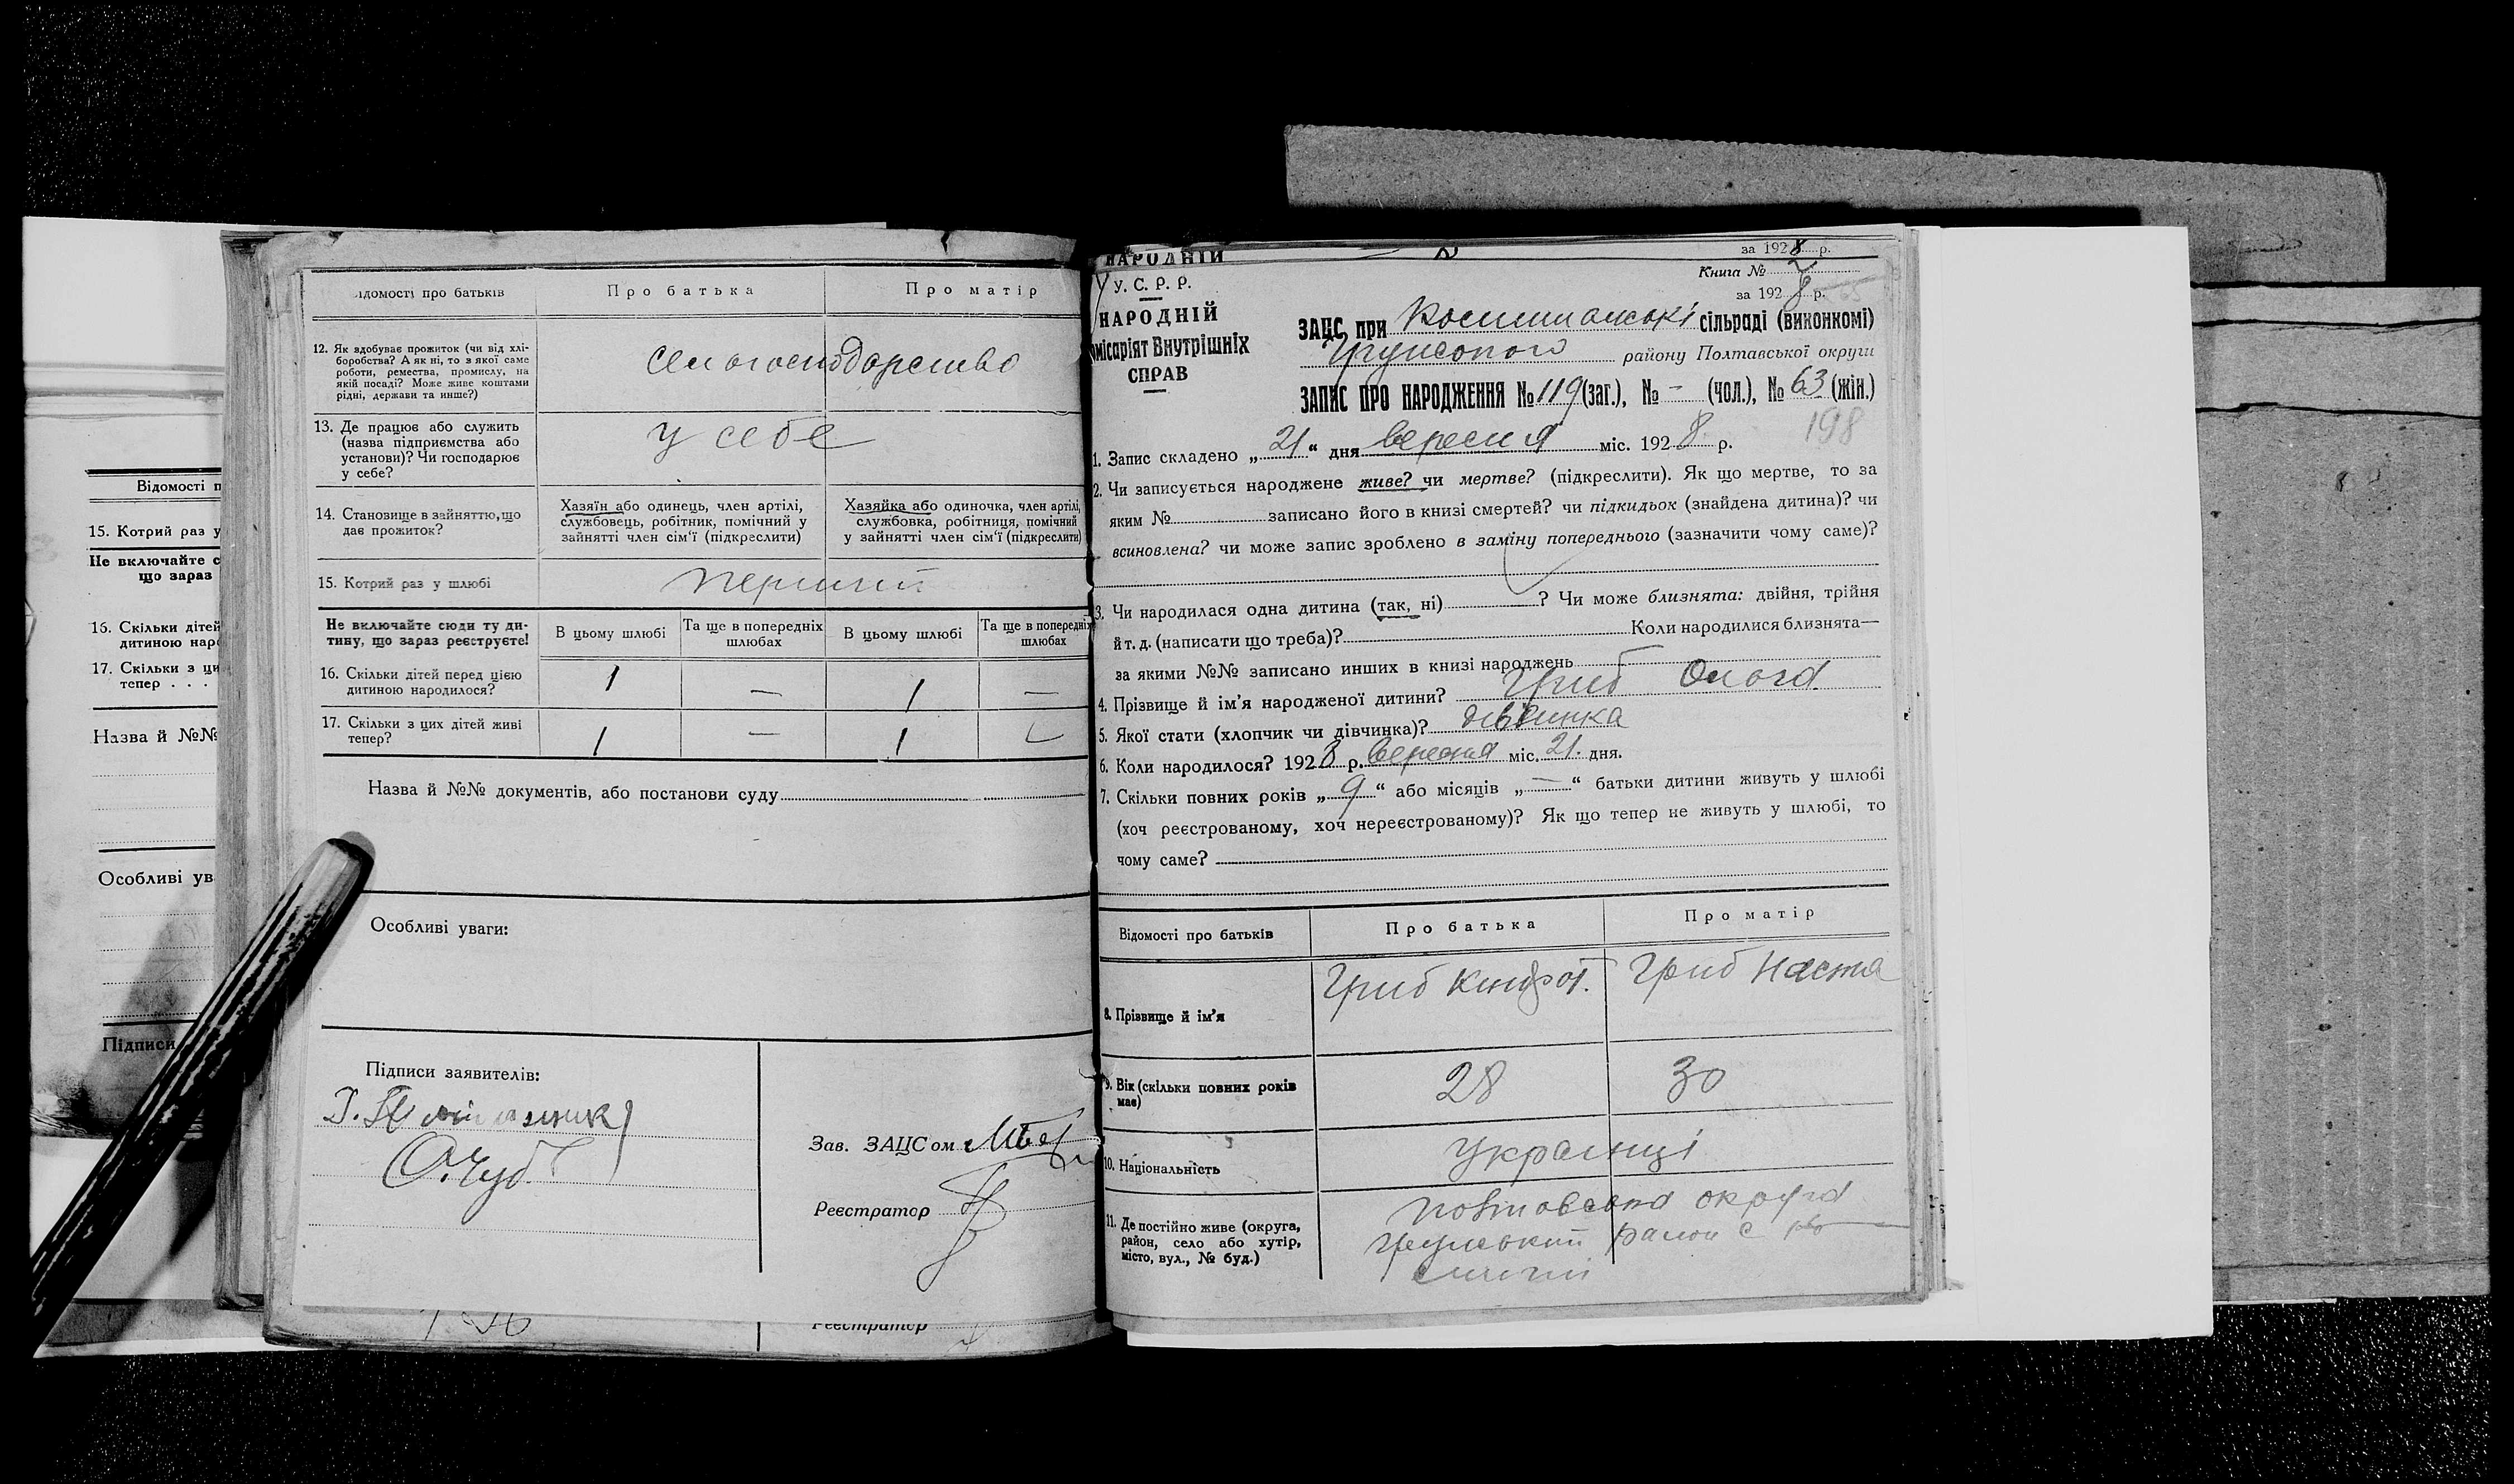 Відомості п
15. Котрий раз у
Не включайте с
що зараз
16. Скільки дітей
дитиною наро
17. Скільки з ци
тепер . . .
Назва й №№
Особливі ув
Підписи
ідомості про батьків
Про батька
Про матір
12. Як здобуває прожиток (чи від хлі-
боробства? А як ні, то з якої саме
роботи, ремества, промислу, на
якій посаді? Може живе коштами
рідні, держави та инше?)
13. Де працює або служить
(назва підприємства або
установи)? Чи господарює
у себе?
у себе
14. Становище в зайняттю, що
дає прожиток?
Хазяїн або одинець, член артілі,
службовець, робітник, помічний у
зайнятті член сім'ї (підкреслити)
Хазяйка або одиночка, член артілі,
службовка, робітниця, помічний
у зайнятті член сім'ї (підкреслити)
15. Котрий раз у шлюбі
перший
Не включайте сюди ту ди-
тину, що зараз реєструєте!
В цьому шлюбі
Та ще в попередніх
шлюбах
В цьому шлюбі
Та ще в попередніх
шлюбах
16. Скільки дітей перед цією
дитиною народилося?
1 — 1 —
17. Скільки з цих дітей живі
тепер?
1 — 1
Назва й №№ документів, або постанови суду
Особливі уваги:
Підписи заявителів:
О. Чуб
Зав. ЗАЦСом
Реєстратор
Реєстратор
НАРОДНІЙ
за 1928 р.
У. С. Р. Р.
НАРОДНІЙ
місаріят Внутрішніх
СПРАВ
Книга № 2
за 1928 р.
ЗАЦС при сільраді (виконкомі)
району Полтавської округи
ЗАПИС ПРО НАРОДЖЕННЯ № 119 (заг.), № - (чол.), № 63 (жін.)
198
1. Запис складено „ 21 " дня вересня міс. 1928 р.
2. Чи записується народжене живе? чи мертве? (підкреслити). Як що мертве, то за
яким № записано його в книзі смертей? чи підкидьок (знайдена дитина)? чи
всиновлена? чи може запис зроблено в заміну попереднього (зазначити чому саме)?
3. Чи народилася одна дитина (так, ні) ? Чи може близнята: двійня, трійня
й т. д. (написати що треба)? Коли народилися близнята—
за якими №№ записано инших в книзі народжень
4. Прізвище й ім'я народженої дитини? Гриб
5. Якої стати (хлопчик чи дівчинка)? дівчинка
6. Коли народилося? 1928 р. вересня міс. 21. дня.
7. Скільки повних років „ 9 " або місяців „ — " батьки дитини живуть у шлюбі
(хоч реєстрованому, хоч нереєстрованому)? Як що тепер не живуть у шлюбі, то
чому саме?
Відомості про батьків
Про батька
Про матір
8. Прізвище й ім'я
Гриб
Гриб Настя
9. Вік (скільки повних років
має)
28
30
10. Національність
українці
11. Де постійно живе (округа,
район, село або хутір,
місто, вул., № буд.)
округа
район с